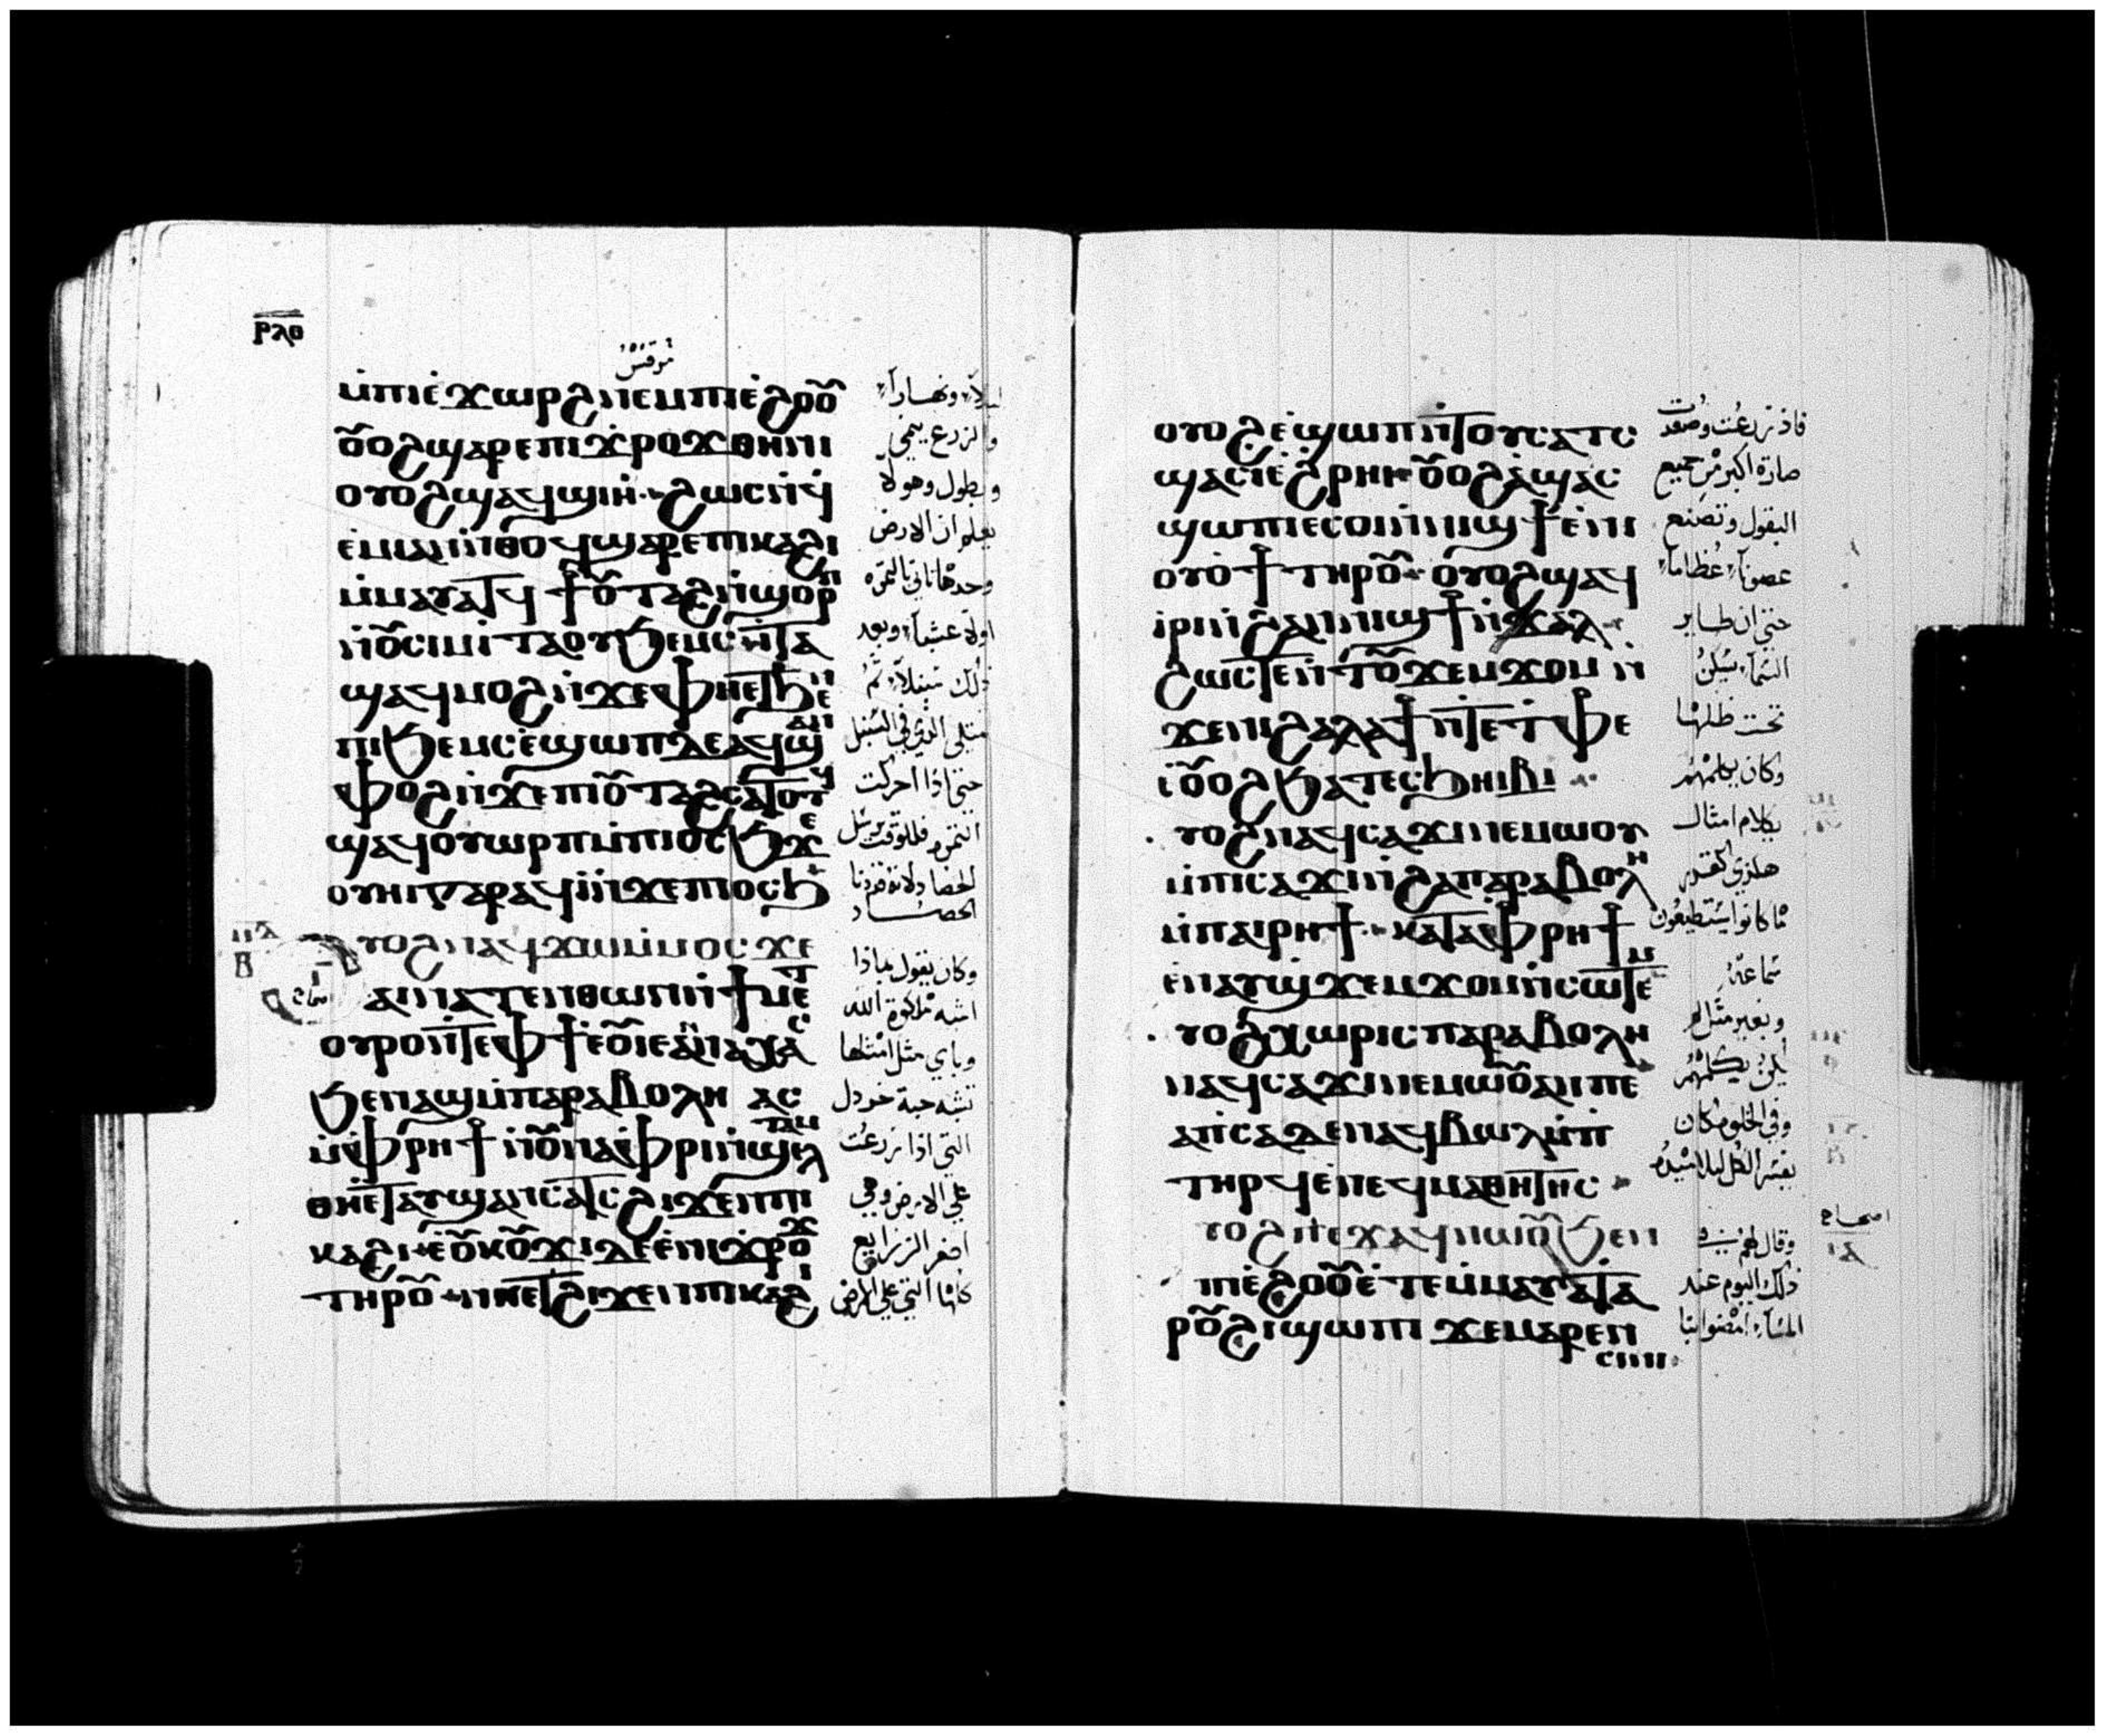 ⲣⲗⲑ
مرقس
ⲙ̀ⲡⲓⲉ̀ϫⲱⲣϩ ⲛⲉⲙ ⲡⲓⲉ̀ϩⲟⲟⲩ
ⲟⲩⲟϩ ϣⲁⲣⲉ ⲡⲓϫⲣⲟϫ ⲑⲏⲓⲛⲓ
ⲟⲩⲟϩ ϣⲁϥϣⲓⲏ ϩⲱⲥ ⲛ̀ϥ
ⲉ̀ⲙⲓ ⲁⲛ ⲛ̀ⲑⲟϥ ϣⲁⲣⲉ ⲡⲓⲕⲁϩⲓ
ⲙ̀ⲙⲁⲩⲁⲧϥ ϯⲟⲩⲧⲁϩ ⲛ̀ϣⲟⲣⲡ
ⲛ̀ⲟⲩⲥⲓⲙ ⲓⲧⲁ ⲟⲩϧⲉⲙⲥ ⲓⲧⲁ
ϣⲁϥⲙⲟϩ ⲛ̀ϫⲉ ⲫⲏⲉⲧϧⲉⲛ
ⲡⲓϧⲉⲙⲥ ⲉ̀ϣⲱⲡ ⲇⲉ ⲁϥϣⲁⲛ
ⲫⲟϩ ⲛ̀ϫⲉ ⲡⲓⲟⲩⲧⲁϩ ⲥⲁⲧⲟⲧϥ
ϣⲁϥⲟⲩⲱⲣⲡ ⲙ̀ⲡⲓⲟⲥϧ ϫⲉ
ⲟⲩⲏⲓ ⲅⲁⲣ ⲁϥⲓ̀ ⲛ̀ϫⲉ ⲡⲓⲟⲥϧ
ⲩⲟϩ ⲛⲁϥϫⲱ ⲙ̀ⲙⲟⲥ ϫⲉ
ⲁⲛⲛⲁⲧⲉⲛⲑⲱⲛ ⲛ̀ϯⲙⲉⲧ
ⲟⲩⲣⲟ ⲛ̀ⲧⲉ ⲫϯ ⲉ̀ⲟⲩ ⲓⲉ ⲁⲛⲛⲁⲭⲁⲥ
ϧⲉⲛ ⲁϣ ⲙ̀ⲡⲁⲣⲁⲃⲟⲗⲏ ⲁⲥ
ⲙ̀ⲫⲣⲏϯ ⲛ̀ⲟⲩⲛⲁⲫⲣⲓ ⲛ̀ϣⲉⲗⲧⲁⲙ
ⲑⲏⲉⲧⲁⲩϣⲁⲛⲥⲁⲧⲥ ϩⲓϫⲉⲛ ⲡⲓ
ⲕⲁϩⲓ ⲉ̀ⲟⲩⲕⲟⲩϫⲓ ⲇⲉ ⲉ̀ⲛⲓϫⲣⲟϫ
ⲧⲏⲣⲟⲩ ⲛⲏⲉⲧϩⲓϫⲉⲛ ⲡⲓⲕⲁϩⲓ
ليلاً ونهاراً
والزرع ينمي
ويطول وهو لا
يعلم ان الارض
وحدها تاتي بالثمرة
اولاً عشباً وبعد
ذلك سنبلاً ثم
يمتلي الذي في السنبل
حتي اذا ادركت
الثمرة فللوقت يرسل
الحصاد
وكان يقول بماذا
اشبه ملكوت الله
وباي مثل امثلها
تشبه حبة خردل
التي اذا زرعت
علي الارض وهي
اصغر الزراريع
كلها التي علي الارض
اصحاح
ⲟⲩⲟϩ ⲉ̀ϣⲱⲡ ⲛ̀ⲧⲟⲩⲥⲁⲧⲥ
ϣⲁⲥⲓ ⲉ̀ϩⲣⲏⲓ ⲟⲩⲟϩ ϣⲁⲥ
ϣⲱⲡⲓ ⲉⲥⲟⲓ ⲛ̀ⲛⲓϣϯ ⲉ̀ⲛⲓ
ⲟⲩⲟϯ ⲧⲏⲣⲟⲩ ⲟⲩⲟϩ ϣⲁϥ
ⲓⲣⲓ ⲛ̀ϩⲁⲛⲛⲓϣϯ ⲛ̀ϫⲁⲗ
ϩⲱⲥⲧⲉ ⲛ̀ⲧⲟⲩϫⲉⲙϫⲟⲙ ⲛ̀
ϫⲉ ⲛⲓϩⲁⲗⲁϯ ⲛ̀ⲧⲉ ⲧ̀ⲫⲉ
ⲓ̀ⲟⲩⲟϩ ϧⲁ ⲧⲉⲥϧⲏⲓⲃⲓ
ⲩⲟϩ ⲛⲁϥⲥⲁϫⲓ ⲛⲉⲙⲱⲟⲩ
ⲙ̀ⲡⲓⲥⲁϫⲓ ⲛ̀ϩⲁⲛⲡⲁⲣⲁⲃⲟⲗⲏ
ⲙ̀ⲡⲁⲓⲣⲏϯ ⲕⲁⲧⲁ ⲫⲣⲏϯ
ⲉ̀ⲛⲁⲩϣϫⲉⲙϫⲟⲙ ⲛ̀ⲥⲱⲧⲉⲙ
ⲩⲟϩ ⲭⲱⲣⲓⲥ ⲡⲁⲣⲁⲃⲟⲗⲏ
ⲛⲁϥⲥⲁϫⲓ ⲛⲉⲙⲱⲟⲩ ⲁⲛ ⲡⲉ
ⲁⲡⲥⲁ ⲇⲉ ⲛⲁϥⲃⲱⲗ ⲙ̀ⲡ
ⲧⲏⲣϥ ⲉ̀ⲛⲉϥⲙⲁⲑⲏⲧⲏⲥ
ⲩⲟϩ ⲡⲉϫⲁϥ ⲛⲱⲟⲩ ϧⲉⲛ
ⲡⲓⲉ̀ϩⲟⲟⲩ ⲉ̀ⲧⲉⲙⲙⲁⲩ ⲉⲧⲁ
ⲣⲟⲩϩⲓ ϣⲱⲡⲓ ϫⲉ ⲙⲁⲣⲉⲛ
ⲥⲓⲛⲓ
فاذا زرعت وصعدت
صارة اكبر من جميع
البقول وتصنع
غصوناً عظاماً
حتي ان طاير
السماء يسكن
تحت ظلها
وكان يكلمهم
بكلام امثال
هكذي كقدر
ما كانوا يستطيعون
سماعه
وبغير مثل لم
يكن يكلمهم
وفي الخلوه كان
وقال لهم في
ذلك اليوم عند
المساء امضوا بنا
اصحاح